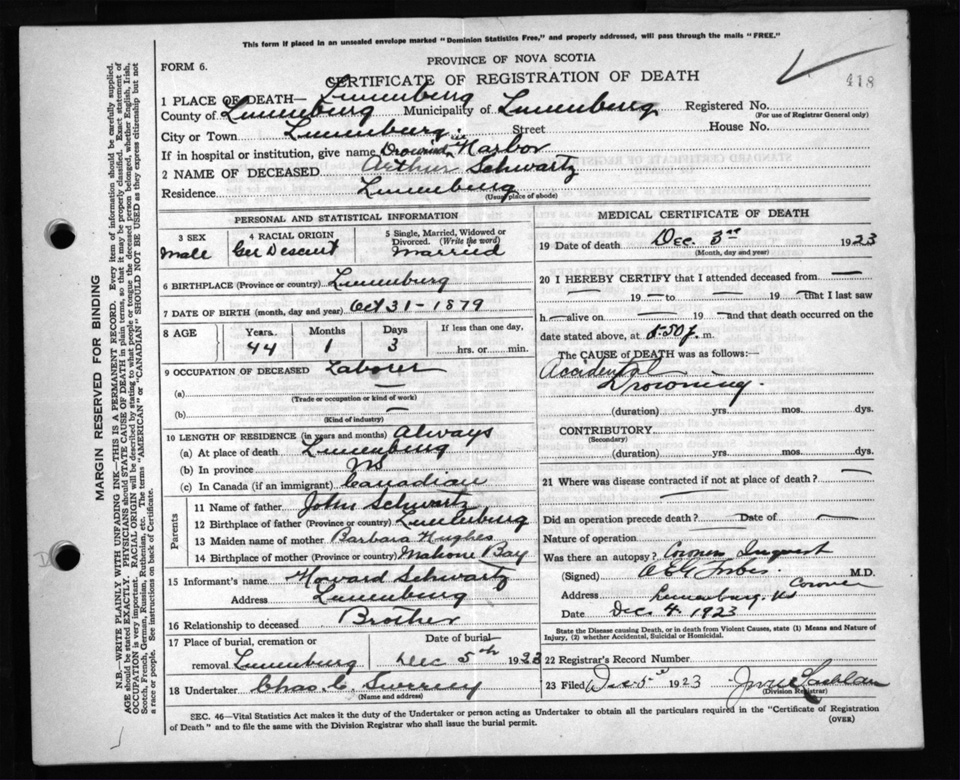 This form if placed in an unsealed envelope marked "Dominion Statistics Free," and properly addressed, will pass through the mails "FREE."
PROVINCE OF NOVA SCOTIA
FORM 6.
CERTIFICATE OF REGISTRATION OF DEATH
418
1 PLACE OF DEATH— Lunenburg
County of Lunenburg Municipality of Lunenburg Registered No.
(For use of Registrar General only)
City or Town Lunenburg Street House No.
If in hospital or institution, give name Drowned in Harbor
2 NAME OF DECEASED Arthur Schwartz
Residence Lunenburg
(Usual place of abode)
PERSONAL AND STATISTICAL INFORMATION
3 SEX 4 RACIAL ORIGIN 5 Single, Married, Widowed or Divorced. (Write the word)
Male Ger Descent Married
6 BIRTHPLACE (Province or country) Lunenburg
7 DATE OF BIRTH (month, day and year) Oct 31-1879
8 AGE Years. Months Days If less than one day,
44 1 3 hrs. or min.
9 OCCUPATION OF DECEASED Laborer
(a)
(Trade or occupation or kind of work)
(b) —
(Kind of industry)
10 LENGTH OF RESIDENCE (in years and months) Always
(a) At place of death Lunenburg
(b) In province NS
(c) In Canada (if an immigrant) Canadian
Parents
11 Name of father John Schwartz
12 Birthplace of father (Province or country) Lunenburg
13 Maiden name of mother Barbara Hughes
14 Birthplace of mother (Province or country) Mahone Bay
15 Informant's name Howard Schwartz
Address Lunenburg
16 Relationship to deceased Brother
17 Place of burial, cremation or Date of burial
removal Lunenburg Dec 5th 1923
18 Undertaker Chas. C.
(Name and address)
MEDICAL CERTIFICATE OF DEATH
19 Date of death Dec. 3rd 1923
(Month, day and year)
20 I HEREBY CERTIFY that I attended deceased from —
— 19 — to — 19 — that I last saw
h — alive on — 19 — and that death occurred on the
date stated above, at 8.30 p. m.
The CAUSE of DEATH was as follows:
Accidental
Drowning.
(duration) yrs. mos. dys.
CONTRIBUTORY
(Secondary)
(duration) yrs. mos. dys.
21 Where was disease contracted if not at place of death? —
Did an operation precede death? — Date of —
Nature of operation
Was there an autopsy? Coroners Inquest
(Signed) Forbes M.D.
Coroner
Address Lunenburg. NS
Date Dec. 4. 1923
State the Disease causing Death, or in death from Violent Causes, state (1) Means and Nature of Injury, (2) whether Accidental, Suicidal or Homicidal.
22 Registrar's Record Number
23 Filed Dec 5 1923
(Division Registrar)
SEC. 46—Vital Statistics Act makes it the duty of the Undertaker or person acting as Undertaker to obtain all the particulars required in the "Certificate of Registration
of Death" and to file the same with the Division Registrar who shall issue the burial permit.
(OVER)
MARGIN RESERVED FOR BINDING
N.B.—WRITE PLAINLY WITH UNFADING INK—THIS IS A PERMANENT RECORD. Every item of information should be carefully supplied.
AGE should be stated EXACTLY. PHYSICIANS should STATE CAUSE OF DEATH in plain terms, so that it may be properly classified. Exact statement of
OCCUPATION is very important. RACIAL ORIGIN will be described by stating to what people or tongue the deceased person belonged, whether English, Irish,
Scotch, French, German, Russian, Ruthenian, etc. The terms "AMERICAN" or "CANADIAN" SHOULD NOT BE USED as they express citizenship but not
a race or people. See instructions on back of Certificate.